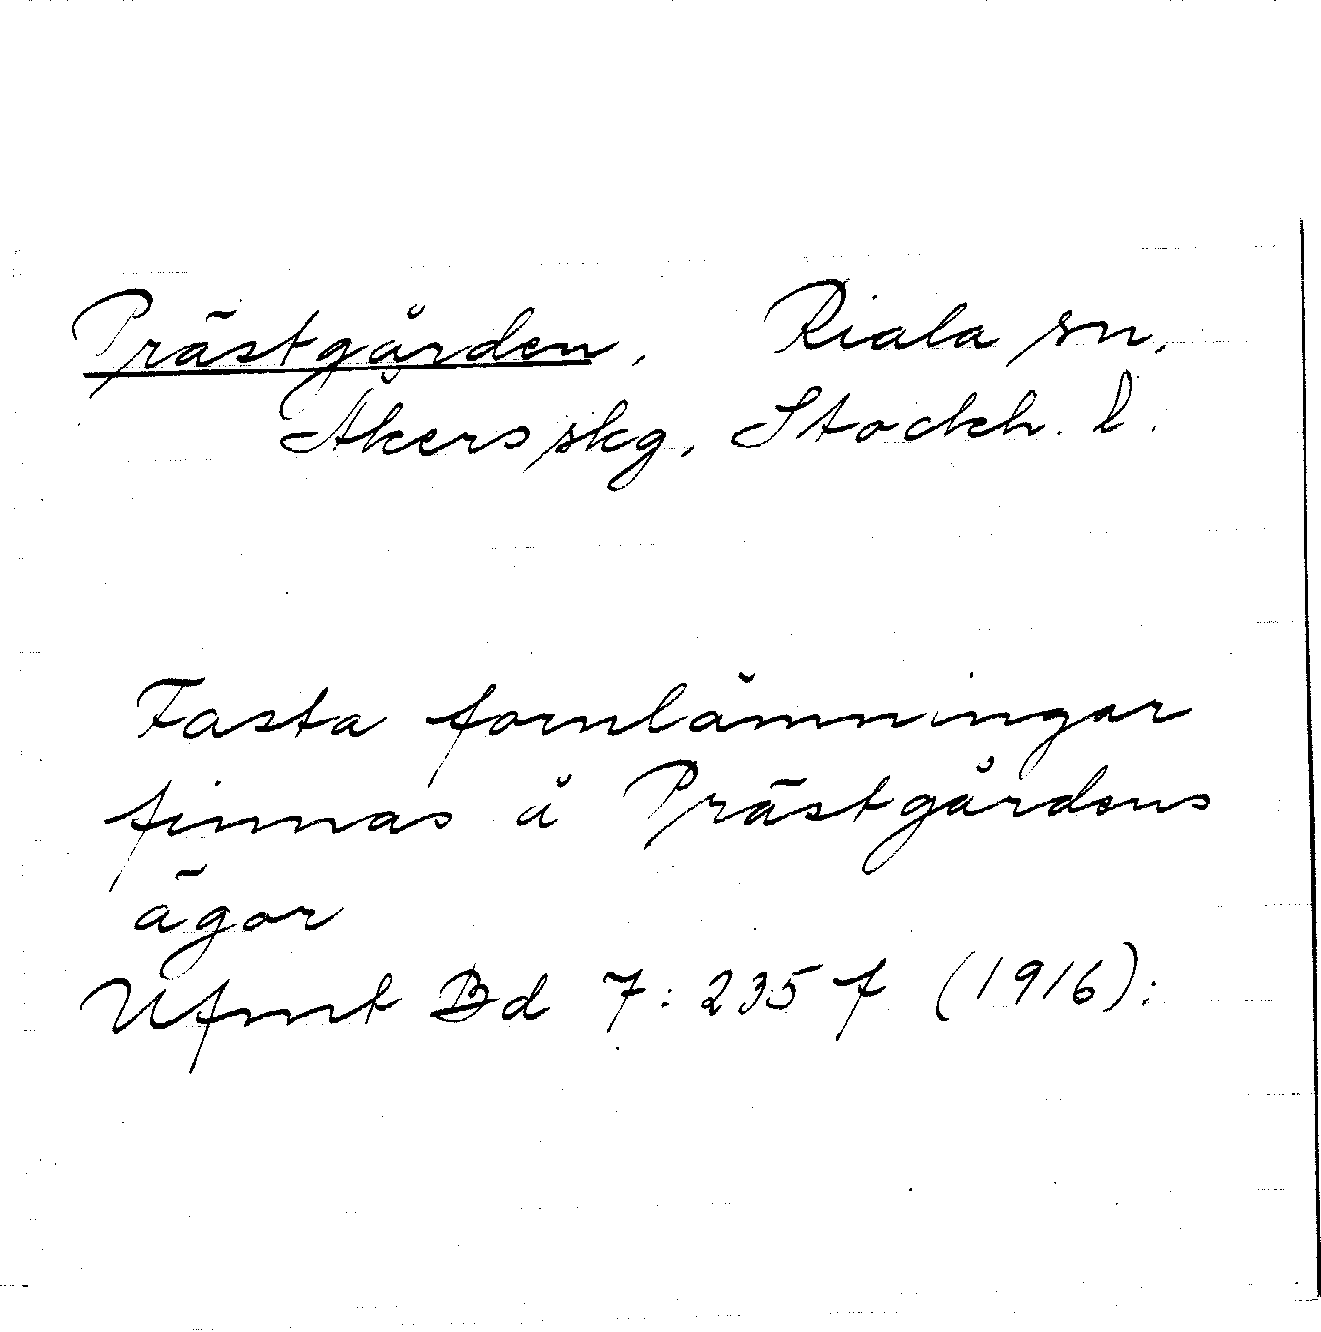 Prästgården, Riala sn,
Åkers skg, Stockh. l.
Fasta fornlämningar
finnas å Prästgårdens
ägor
Ufmt Bd 7: 235 f (1916):